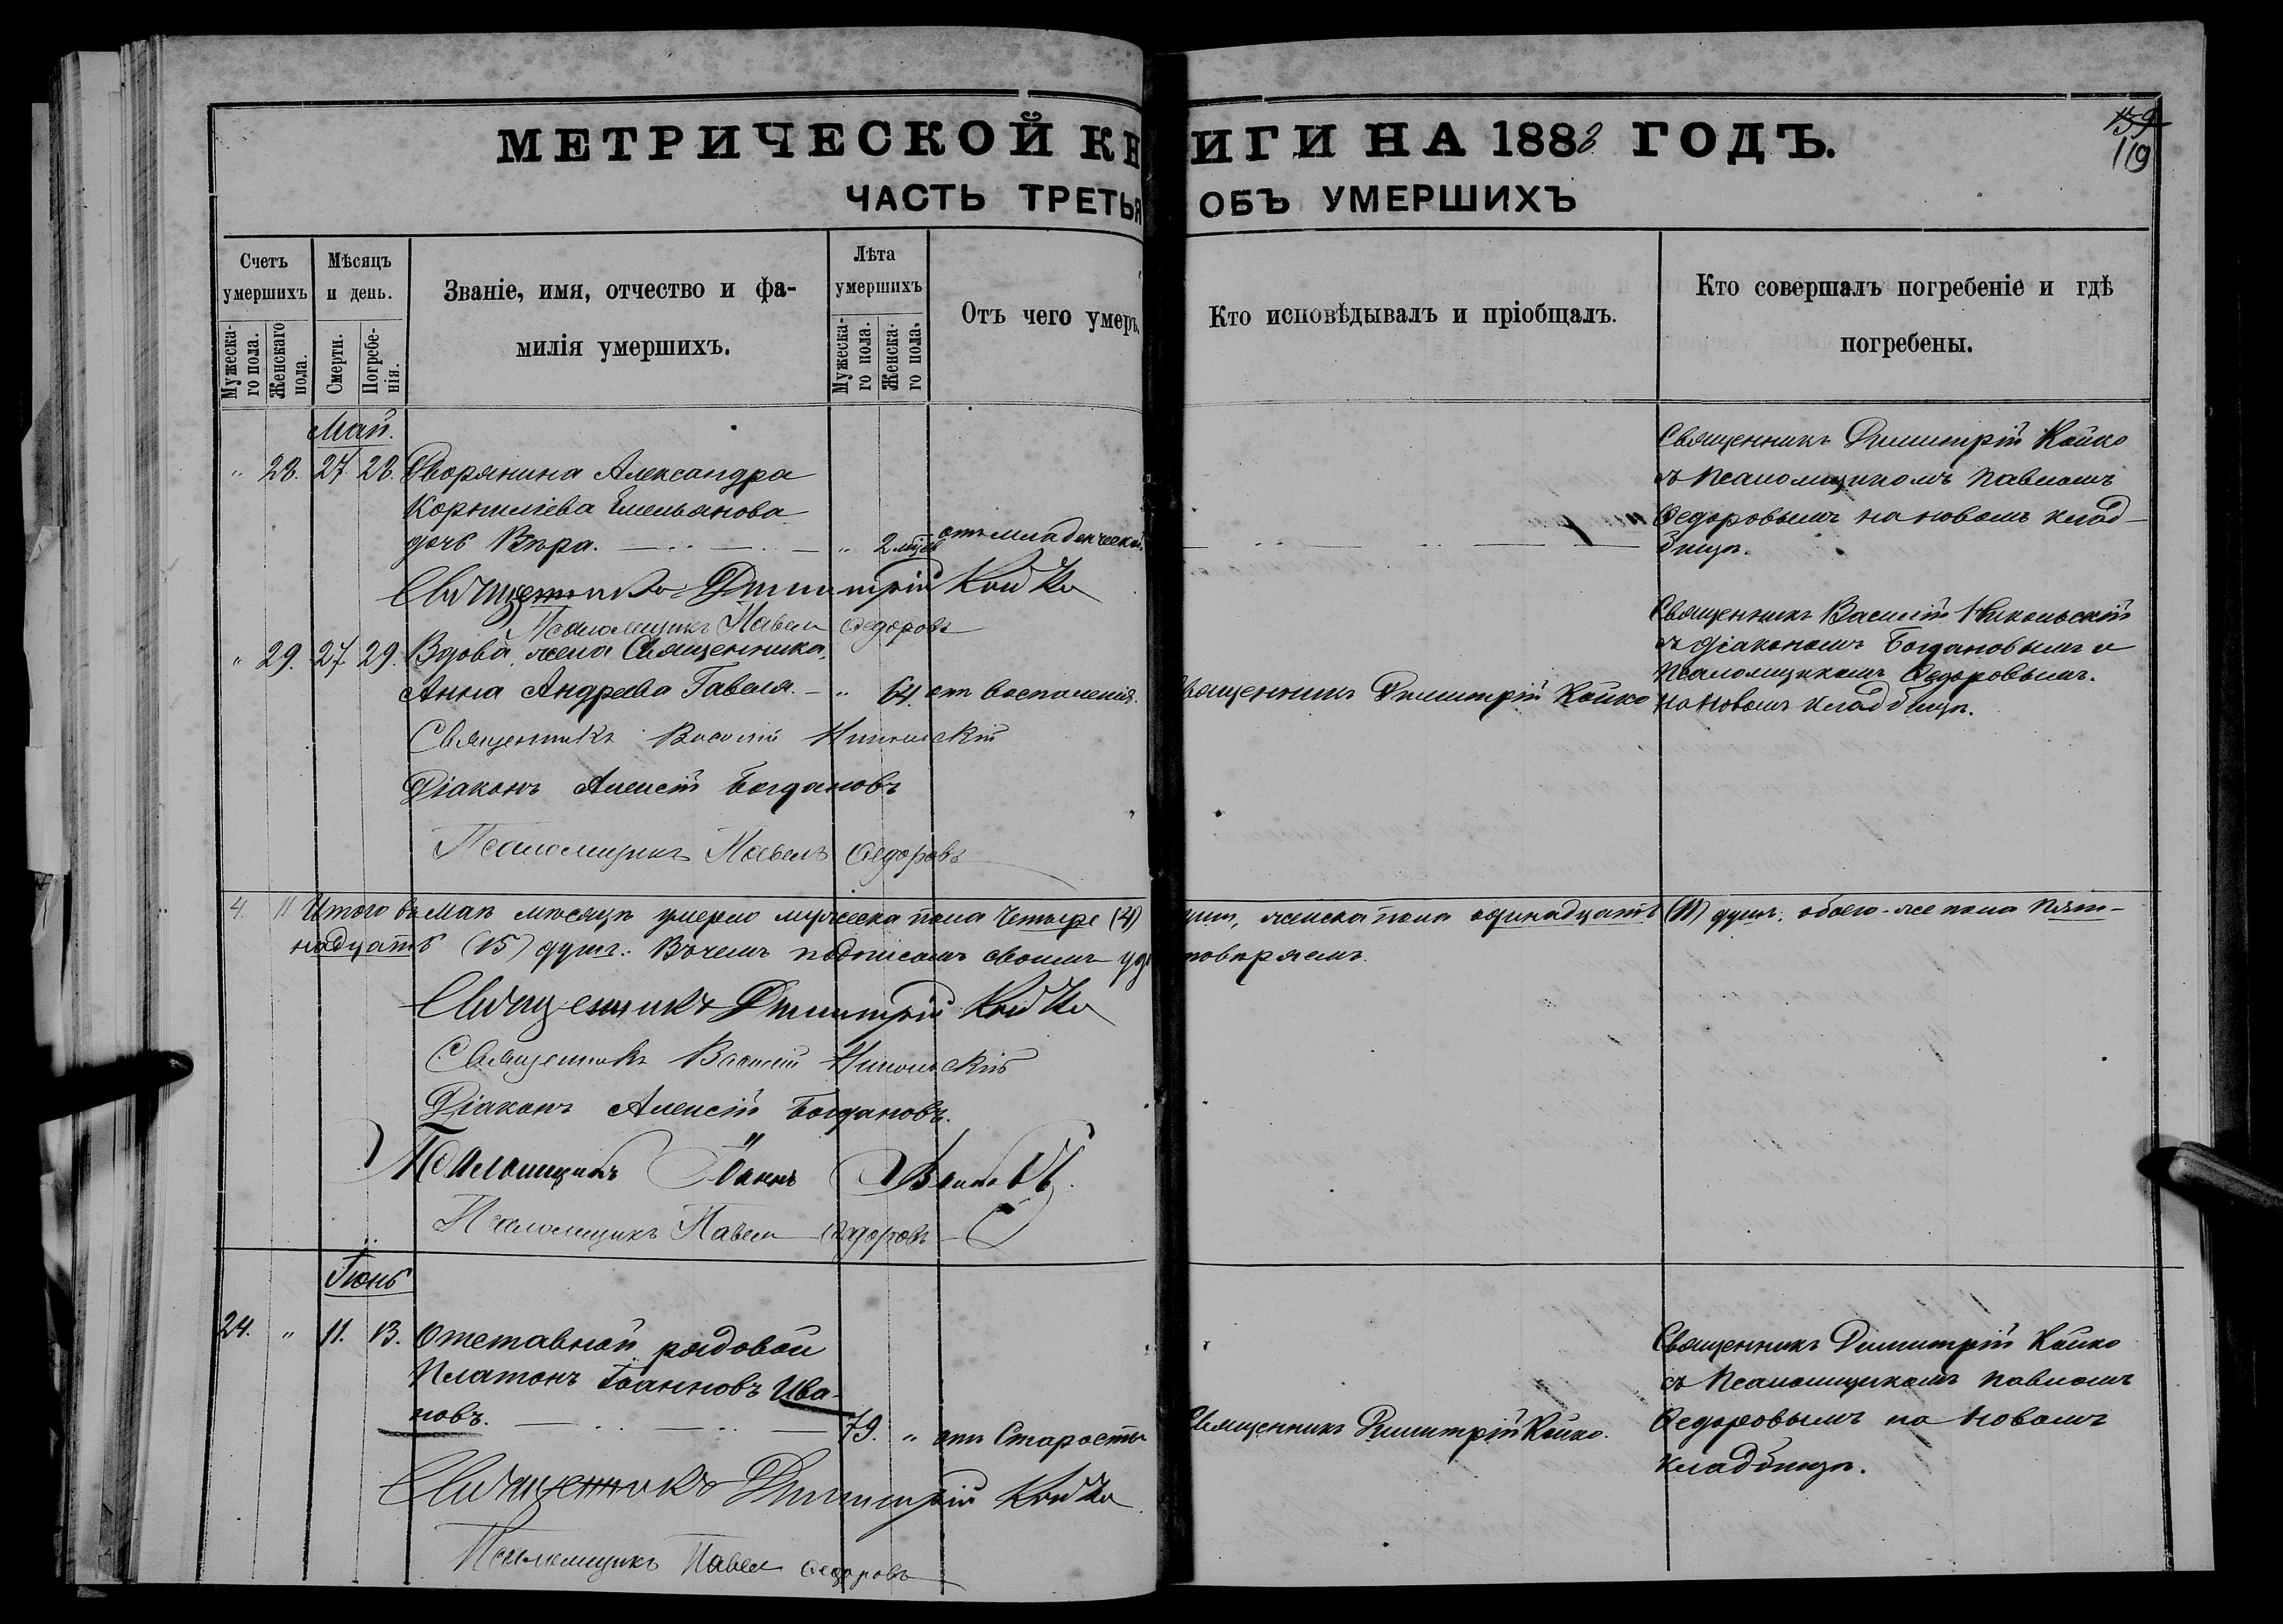 МЕТРИЧЕСКОЙ КНИГИ НА 1888 ГОДЪ.
159
119
ЧАСТЬ ТРЕТЬЯ ОБЪ УМЕРШИХЪ
Счетъ умершихъ
Мужеска-го пола.
Женскаго пола.
Мѣсяцъ и день.
Смерти.
Погребе-нія.
Званіе, имя, отчество и фа-
милія умершихъ.
Лѣта умершихъ
Мужеска-го пола.
Женска-го пола.
Отъ чего умеръ.
Кто исповѣдывалъ и пріобщалъ.
Кто совершалъ погребеніе и гдѣ
погребены.
Май.
" 28. 27. 28. Дворянина Александра
Корниліева Емельянова
дочь Вѣра. " 2 мѣс. отъ младенческой.
Священникъ Димитрій Койко
съ Псаломщикомъ Павломъ
Ѳедоровымъ на новомъ клад-
бищѣ.
Священникъ Димитрій Койко
Псаломщикъ Павелъ Ѳедоровъ
" 29. 27. 29. Вдова, жена Священника,
Анна Андреева Гавеля. " 64. отъ воспаленія.
Священникъ Димитрій Койко
Священникъ Василій Никольскій
съ діакономъ Богдановымъ и
Псаломщикомъ Ѳедоровымъ.
на новомъ кладбищѣ.
Священникъ Василій Никольскій
Діаконъ Алексій Богдановъ
Псаломщикъ Павелъ Ѳедоровъ
4. 11. Итого въ маѣ мѣсяцѣ умерло мужеска пола четыре (4) душ, женска пола одинадцать (11) душъ, обоего-же пола Пят-
надцать (15) душъ. Въ чемъ подписомъ своимъ удостовѣряемъ.
Священникъ Димитрій Койко
Священникъ Василій Никольскій
Діаконъ Алексій Богдановъ.
Псаломщикъ Іоаннъ
Псаломщикъ Павелъ Ѳедоровъ
Іюнь
24. " 11. 13. Отставной рядовой
Платонъ Іоанновъ Ива-
новъ. 79. " отъ Старости
Священникъ Димитрій Койко.
Священникъ Димитрій Койко
съ Псаломщикомъ Павломъ
Ѳедоровымъ на Новомъ
кладбищѣ.
Священникъ Димитрій Койко
Псаломщикъ Павелъ Ѳедоровъ